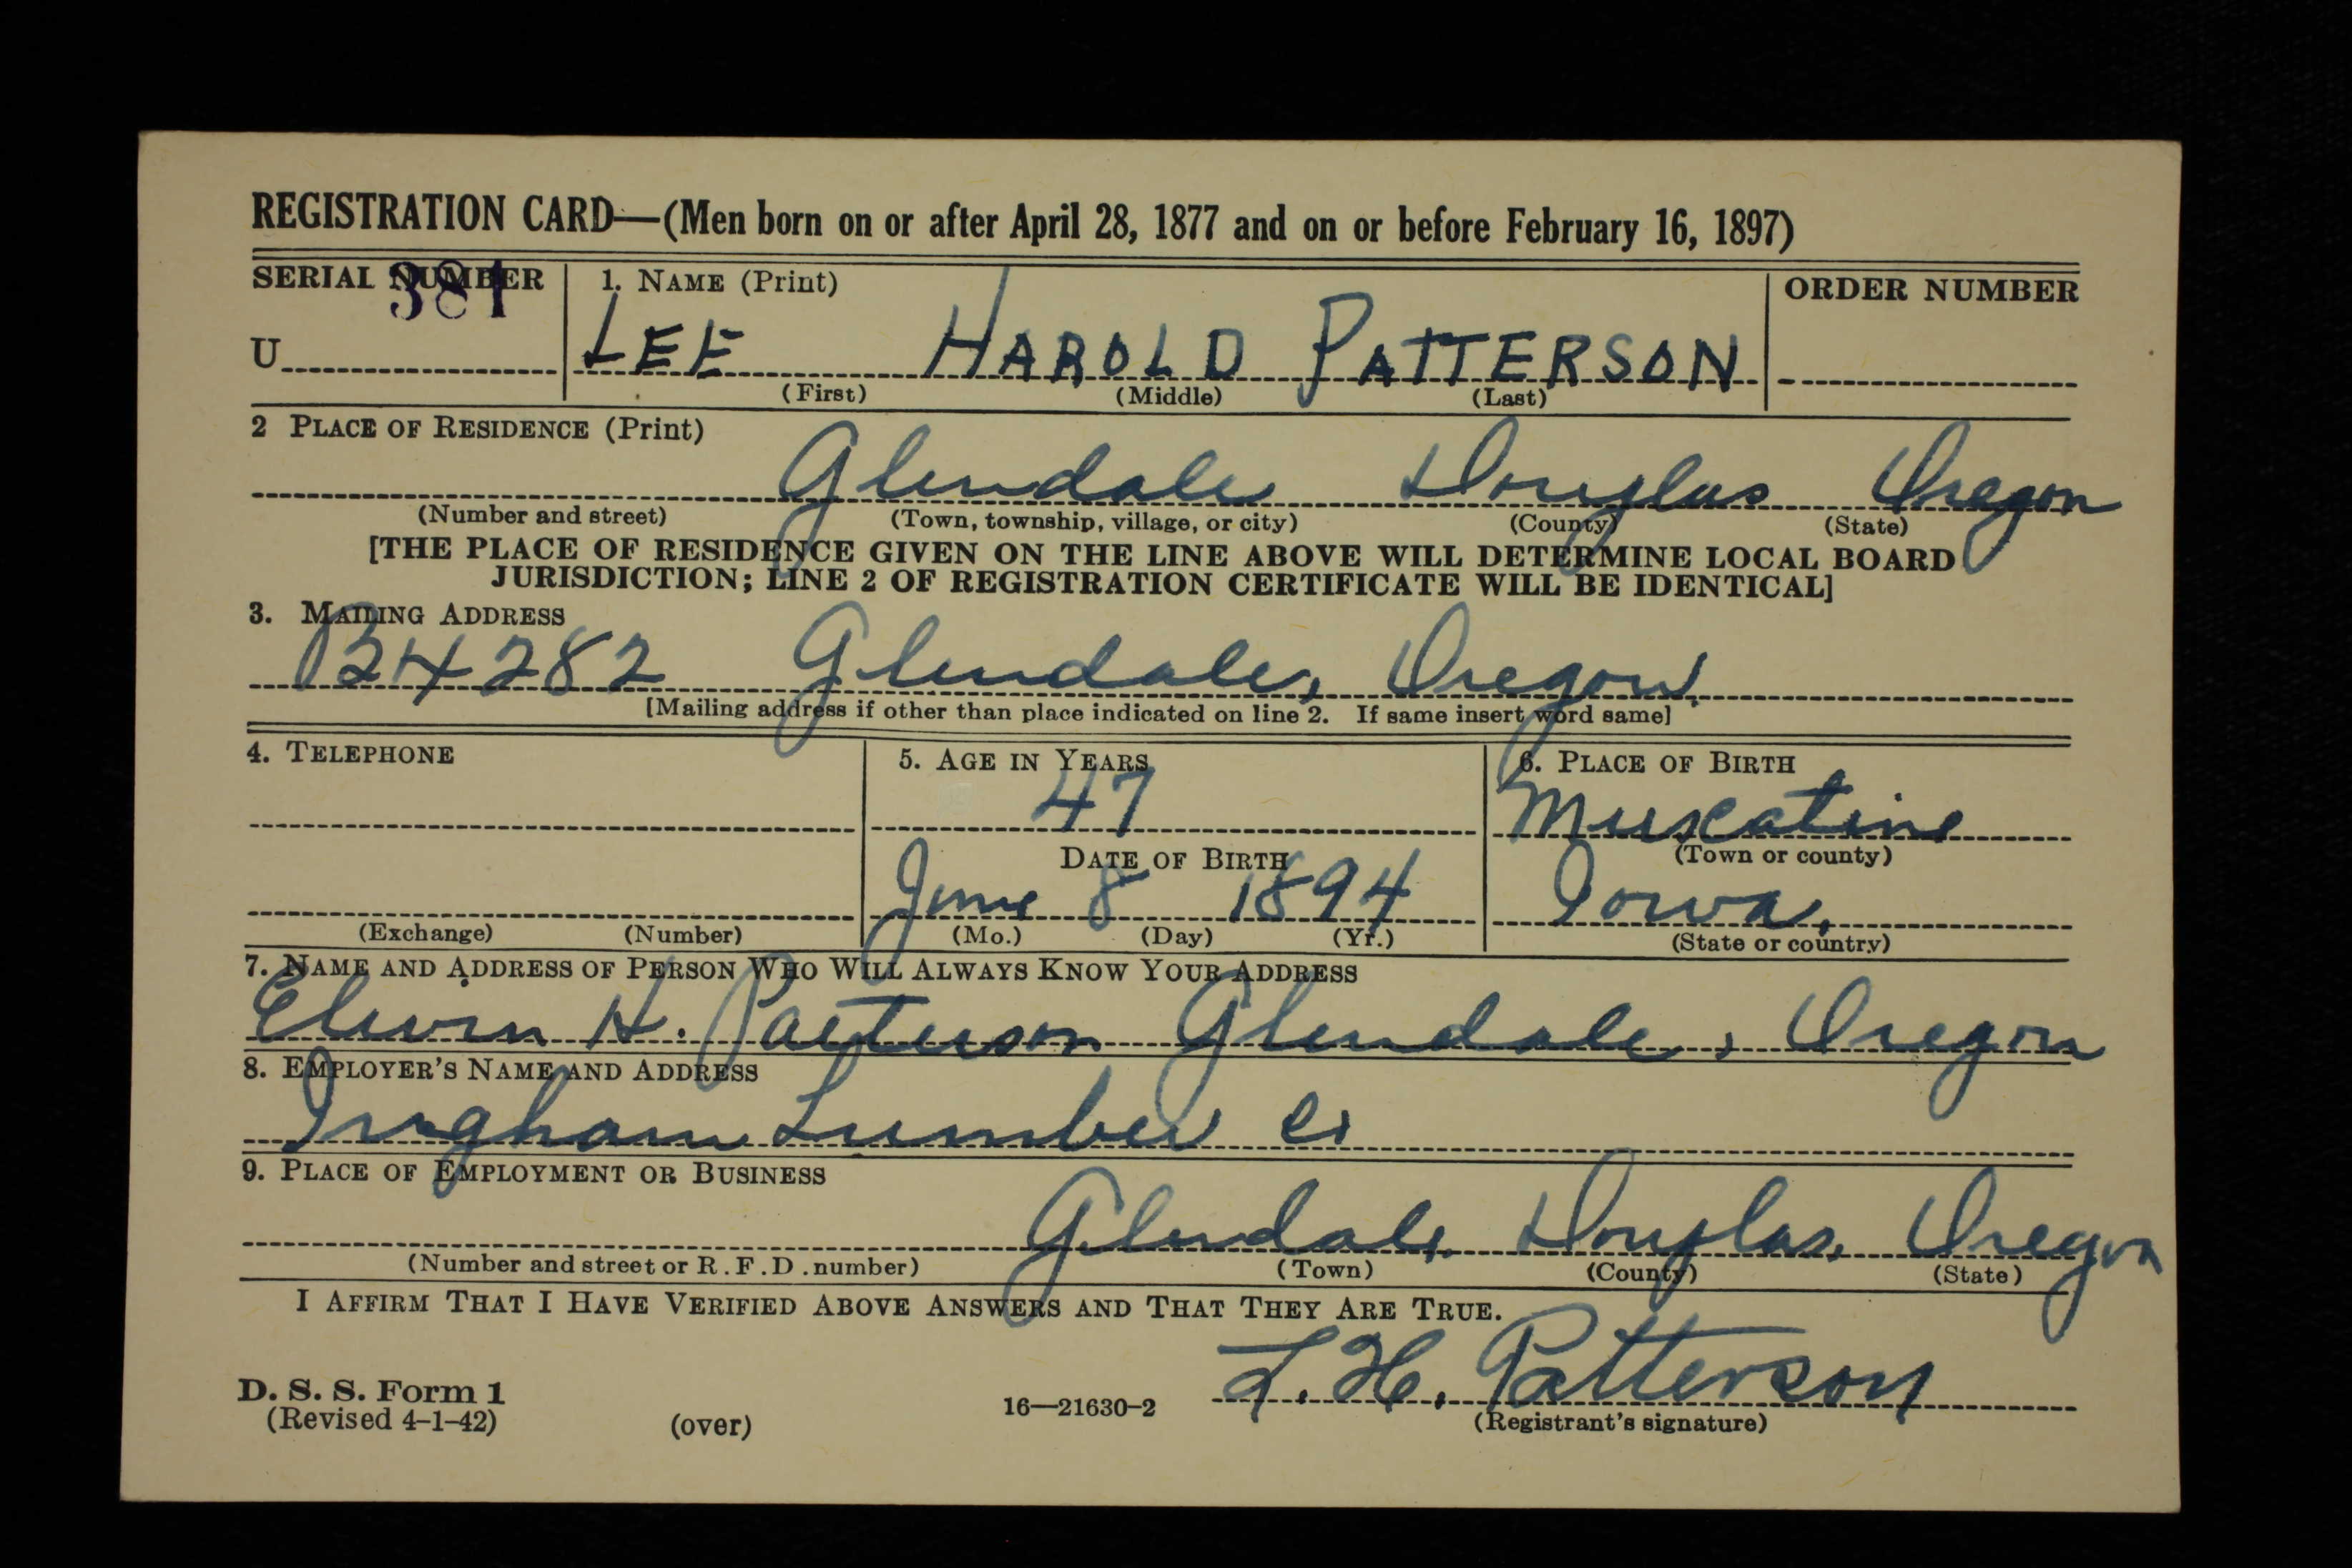 REGISTRATION CARD—(Men born on or after April 28, 1877 and on or before February 16, 1897)
SERIAL NUMBER 381 1. NAME (Print) ORDER NUMBER
U LEE HAROLD PATTERSON
(First) (Middle) (Last)
2 PLACE OF RESIDENCE (Print)
Glendale Douglas Oregon
(Number and street) (Town, township, village, or city) (County) (State)
[THE PLACE OF RESIDENCE GIVEN ON THE LINE ABOVE WILL DETERMINE LOCAL BOARD
JURISDICTION; LINE 2 OF REGISTRATION CERTIFICATE WILL BE IDENTICAL]
3. MAILING ADDRESS
Glendale, Oregon.
[Mailing address if other than place indicated on line 2. If same insert word same]
4. TELEPHONE 5. AGE IN YEARS 6. PLACE OF BIRTH
47 Muscatine
DATE OF BIRTH (Town or county)
June 8 1894 Iowa.
(Exchange) (Number) (Mo.) (Day) (Yr.) (State or country)
7. NAME AND ADDRESS OF PERSON WHO WILL ALWAYS KNOW YOUR ADDRESS
Elwin H. Patterson Glendale, Oregon
8. EMPLOYER'S NAME AND ADDRESS
Ingham Lumber Co
9. PLACE OF EMPLOYMENT OR BUSINESS
Glendale, Douglas, Oregon
(Number and street or R.F.D. number) (Town) (County) (State)
I AFFIRM THAT I HAVE VERIFIED ABOVE ANSWERS AND THAT THEY ARE TRUE.
L. H. Patterson
D. S. S. Form 1
(Revised 4-1-42) (over) 16—21630-2 (Registrant's signature)